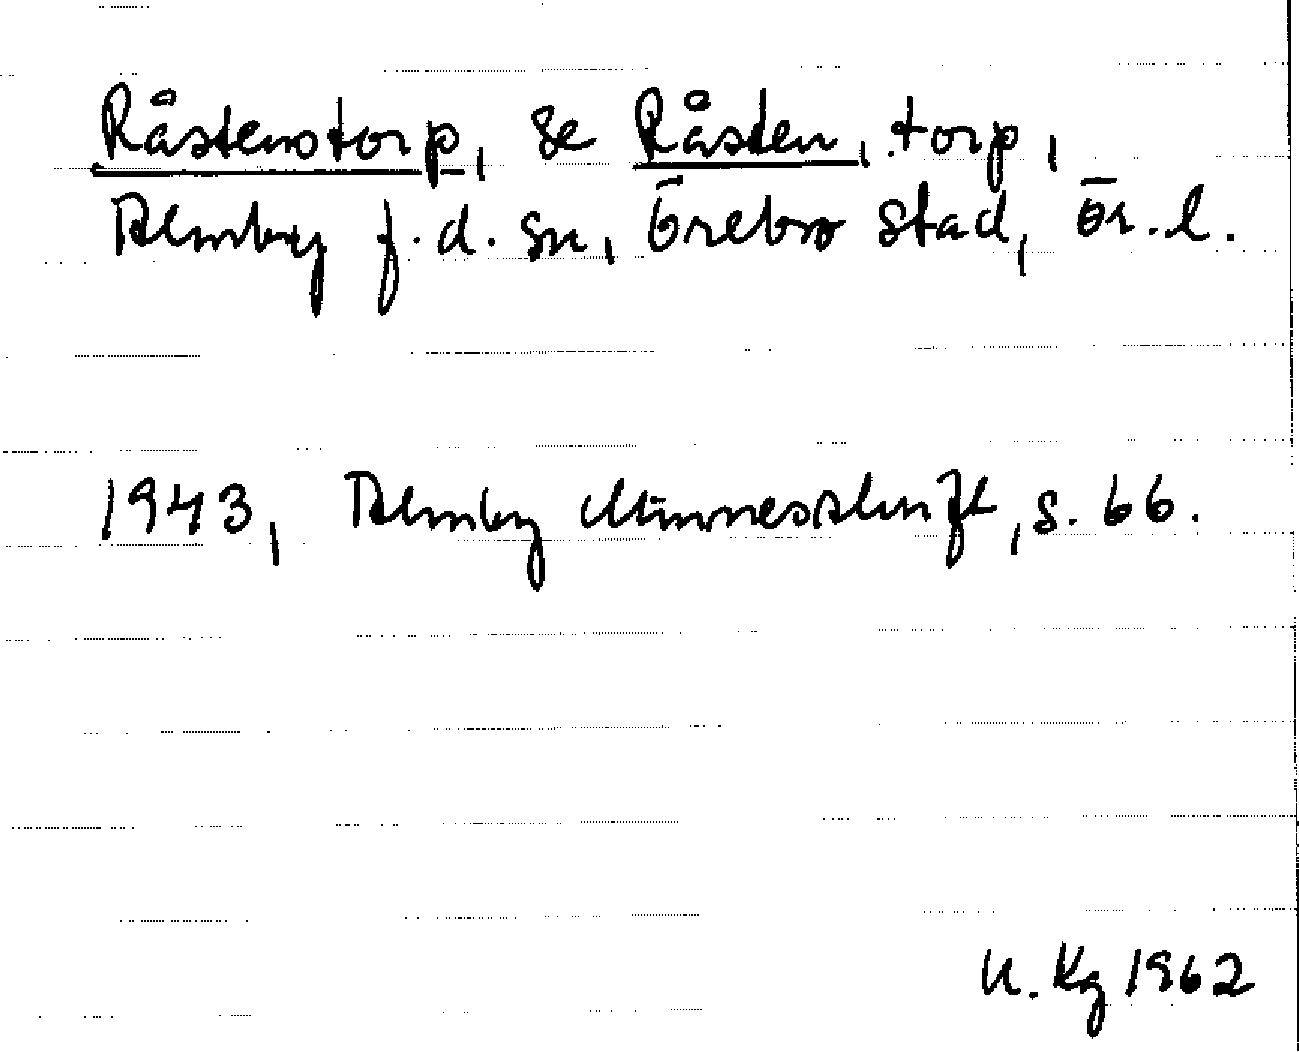 Råstenstorp, se Råsten, torp,
Almby f.d. sn, Örebro stad, Ör. l.
1943, Almby Minnesskrift, s. 66.
U. Kg 1962